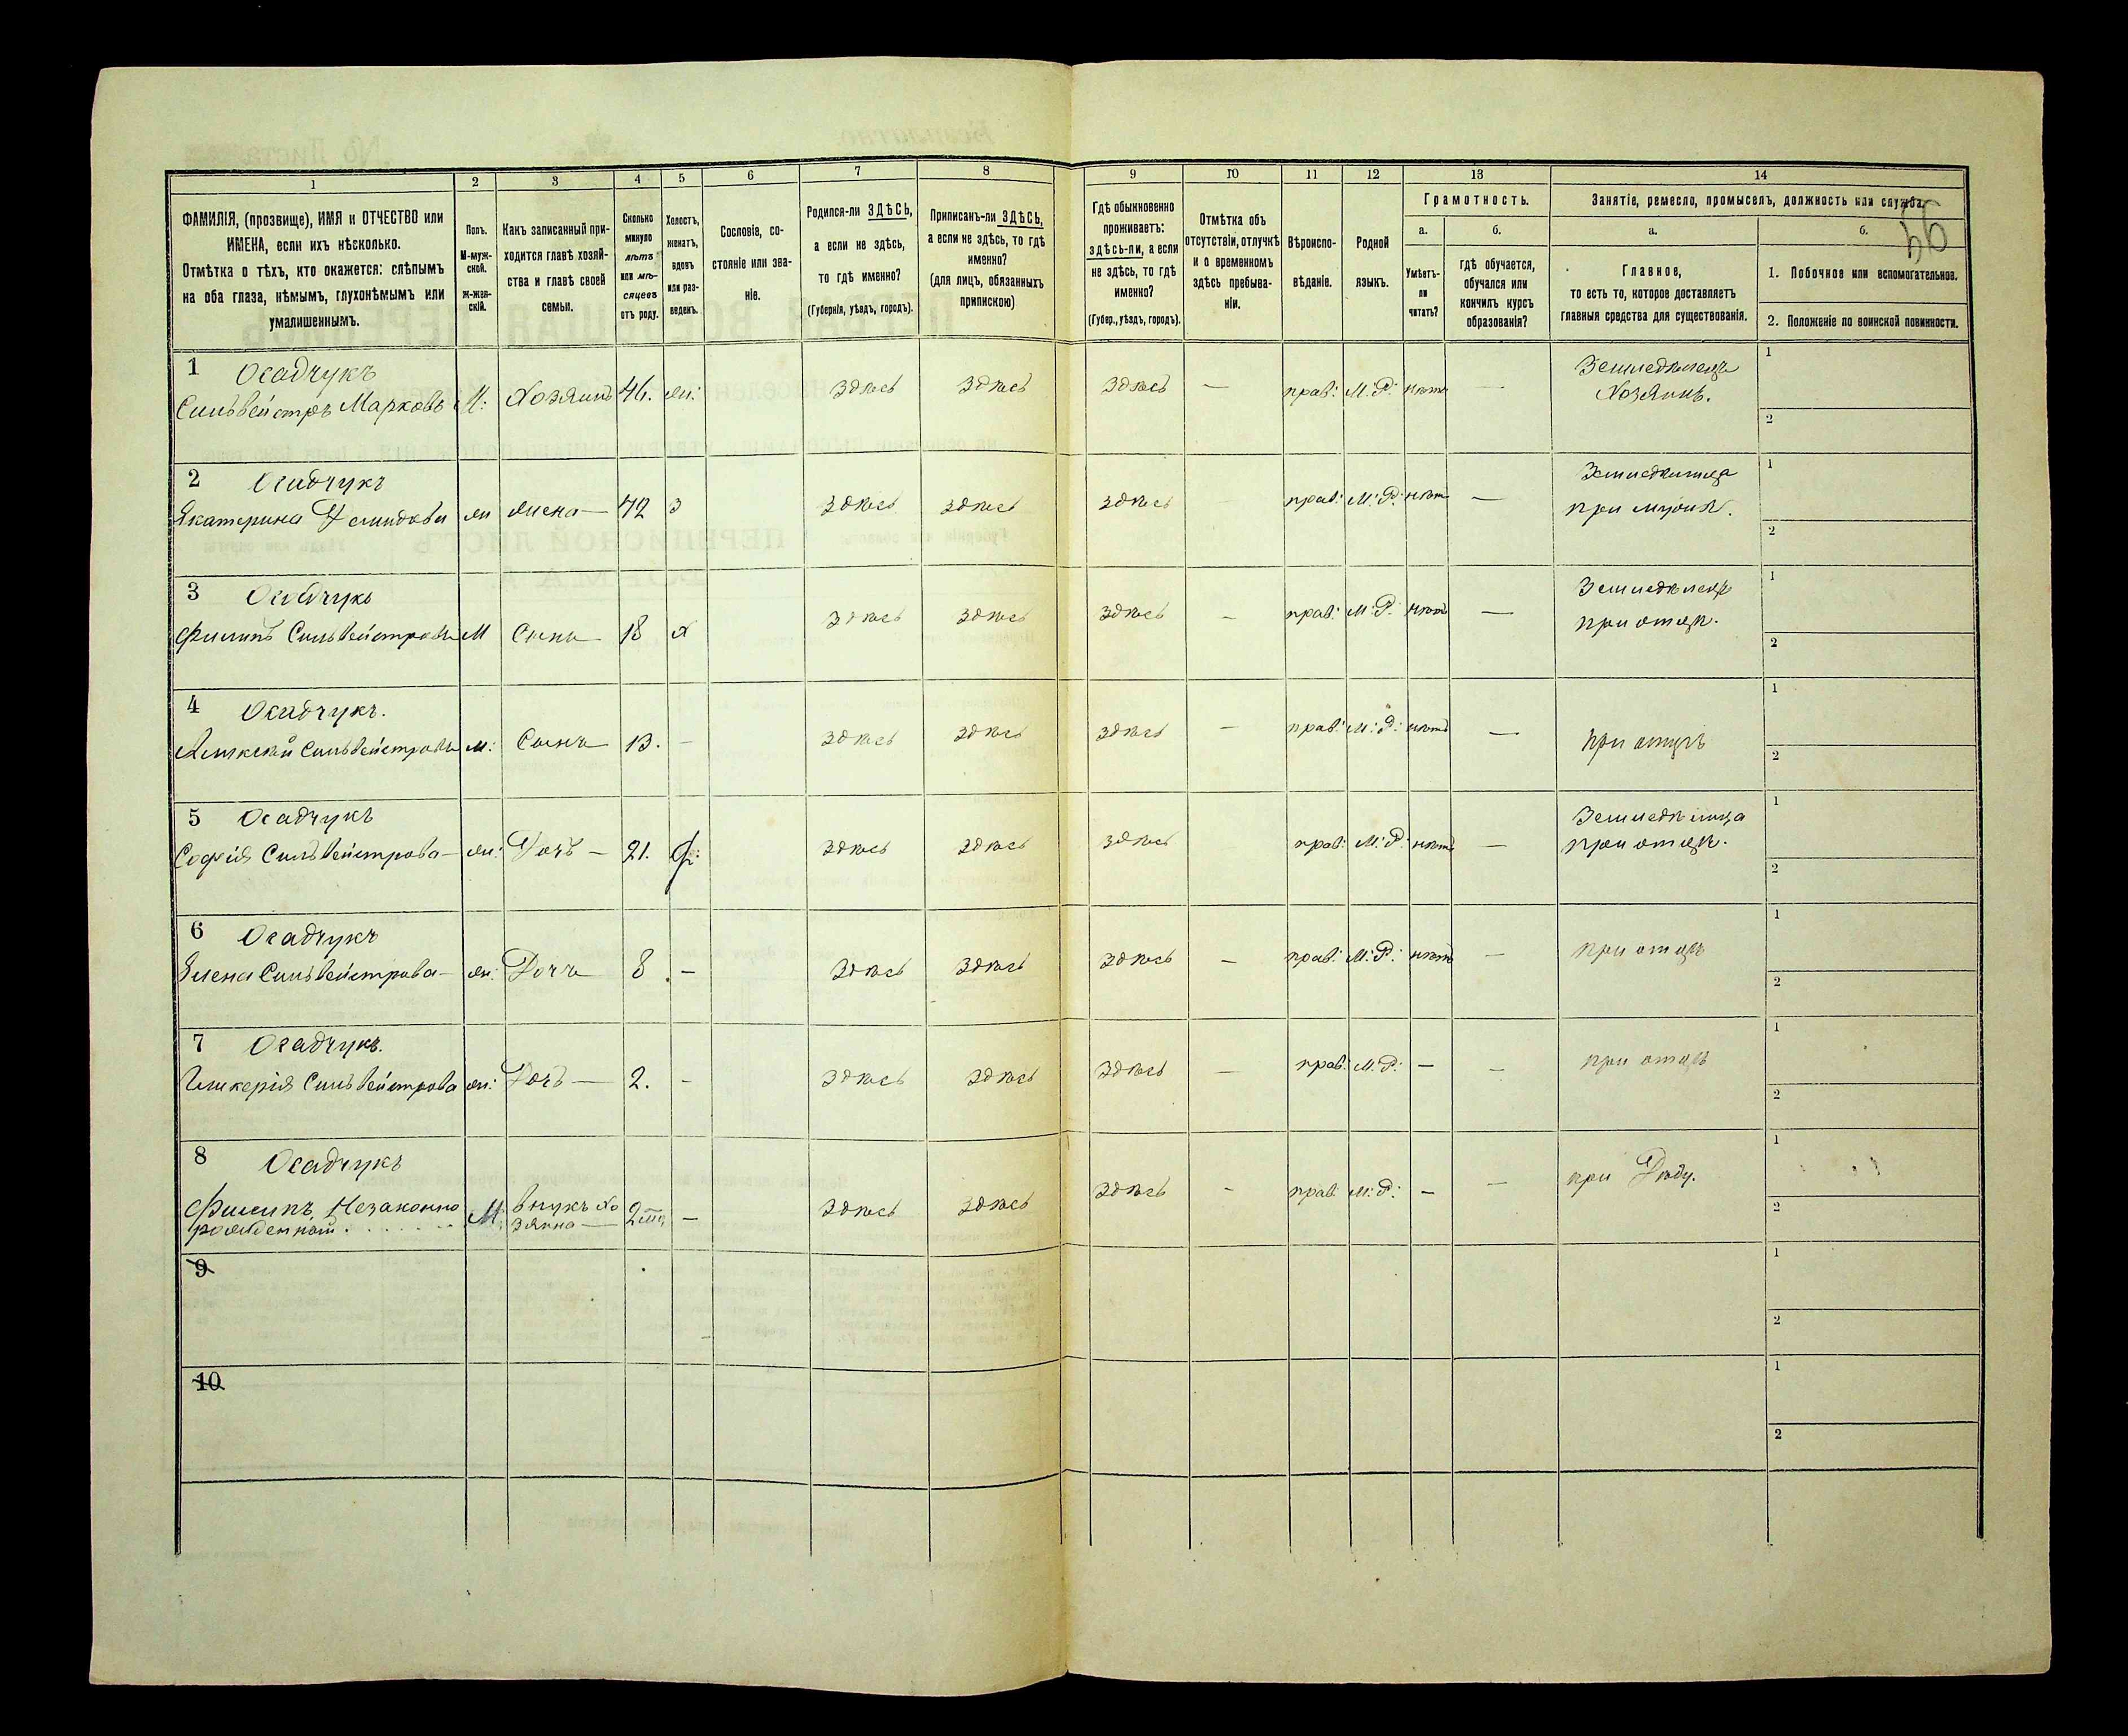 1 2 3 4 5 6 7 8 9 10 11 12 13 14
ФАМИЛІЯ, (прозвище), ИМЯ и ОТЧЕСТВО или
ИМЕНА, если ихъ нѣсколько.
Отмѣтка о тѣхъ, кто окажется: слѣпымъ
на оба глаза, нѣмымъ, глухонѣмымъ или
умалишеннымъ.
Полъ.
М-муж-
ской.
Ж-жен-
скій.
Какъ записанный при-
ходится главѣ хозяй-
ства и главѣ своей
семьи.
Сколько
минуло
лѣтъ
или мѣ-
сяцевъ
отъ роду.
Холостъ,
женатъ,
вдовъ
или раз-
веденъ.
Сословіе, со-
стояніе или зва-
ніе.
Родился-ли ЗДѢСЬ,
а если не здѣсь,
то гдѣ именно?
(Губернія, уѣздъ, городъ).
Приписанъ-ли ЗДѢСЬ,
а если не здѣсь, то гдѣ
именно?
(для лицъ, обязанныхъ
припискою)
Гдѣ обыкновенно
проживаетъ:
здѣсь-ли, а если
не здѣсь, то гдѣ
именно?
(Губер., уѣздъ, городъ).
Отмѣтка объ
отсутствіи, отлучкѣ
и о временномъ
здѣсь пребыва-
ніи.
Вѣроиспо-
вѣданіе.
Родной
языкъ.
Грамотность.
а.
Умѣетъ-
ли
читать?
б.
гдѣ обучается,
обучался или
кончилъ курсъ
образованія?
Занятіе, ремесло, промыселъ, должность или служба.
а.
Главное,
то есть то, которое доставляетъ
главныя средства для существованія.
б.
1. Побочное или вспомогательное.
2. Положеніе по воинской повинности.
1 Осадчукъ
Сильвейстръ Марковъ М: Хозяинъ 46. ж: здѣсь здѣсь здѣсь — прав: М:Р: нѣтъ —
Земледѣлецъ
Хозяинъ.
1
2
2 Осадчукъ
Екатерина ж жена — 42 з здѣсь здѣсь здѣсь прав: М:Р: нѣтъ —
при мужѣ.
1
2
3 Осадчукъ
Филипъ Сильвейстровъ М Сынъ 18 х здѣсь здѣсь здѣсь — прав: М:Р: нѣтъ —
Земледѣлецъ
при отцѣ.
1
2
4 Осадчукъ.
Алексѣй Сильвейстровъ м: Сынъ 13. — здѣсь здѣсь здѣсь — прав: М:Р: нѣтъ —
при отцѣ
1
2
5 Осадчукъ
Софія Сильвейстрова — ж: Дочь — 21. здѣсь здѣсь здѣсь прав: М:Р: нѣтъ —
при отцѣ.
1
2
6 Осадчукъ
Елена Сильвейстрова — ж: Дочь 8 — здѣсь здѣсь здѣсь — прав: М:Р: нѣтъ — при отцѣ
1
2
7 Осадчукъ.
Гликерія Сильвейстрова ж: Дочь — 2. — здѣсь здѣсь здѣсь — прав: М:Р: — — при отцѣ
1
2
8 Осадчукъ
Филипъ Незаконно
рожденный М: внукъ хо
зяина — — здѣсь здѣсь здѣсь — прав М:Р: — — при Дѣду.
1
2
9
1
2
10
1
2